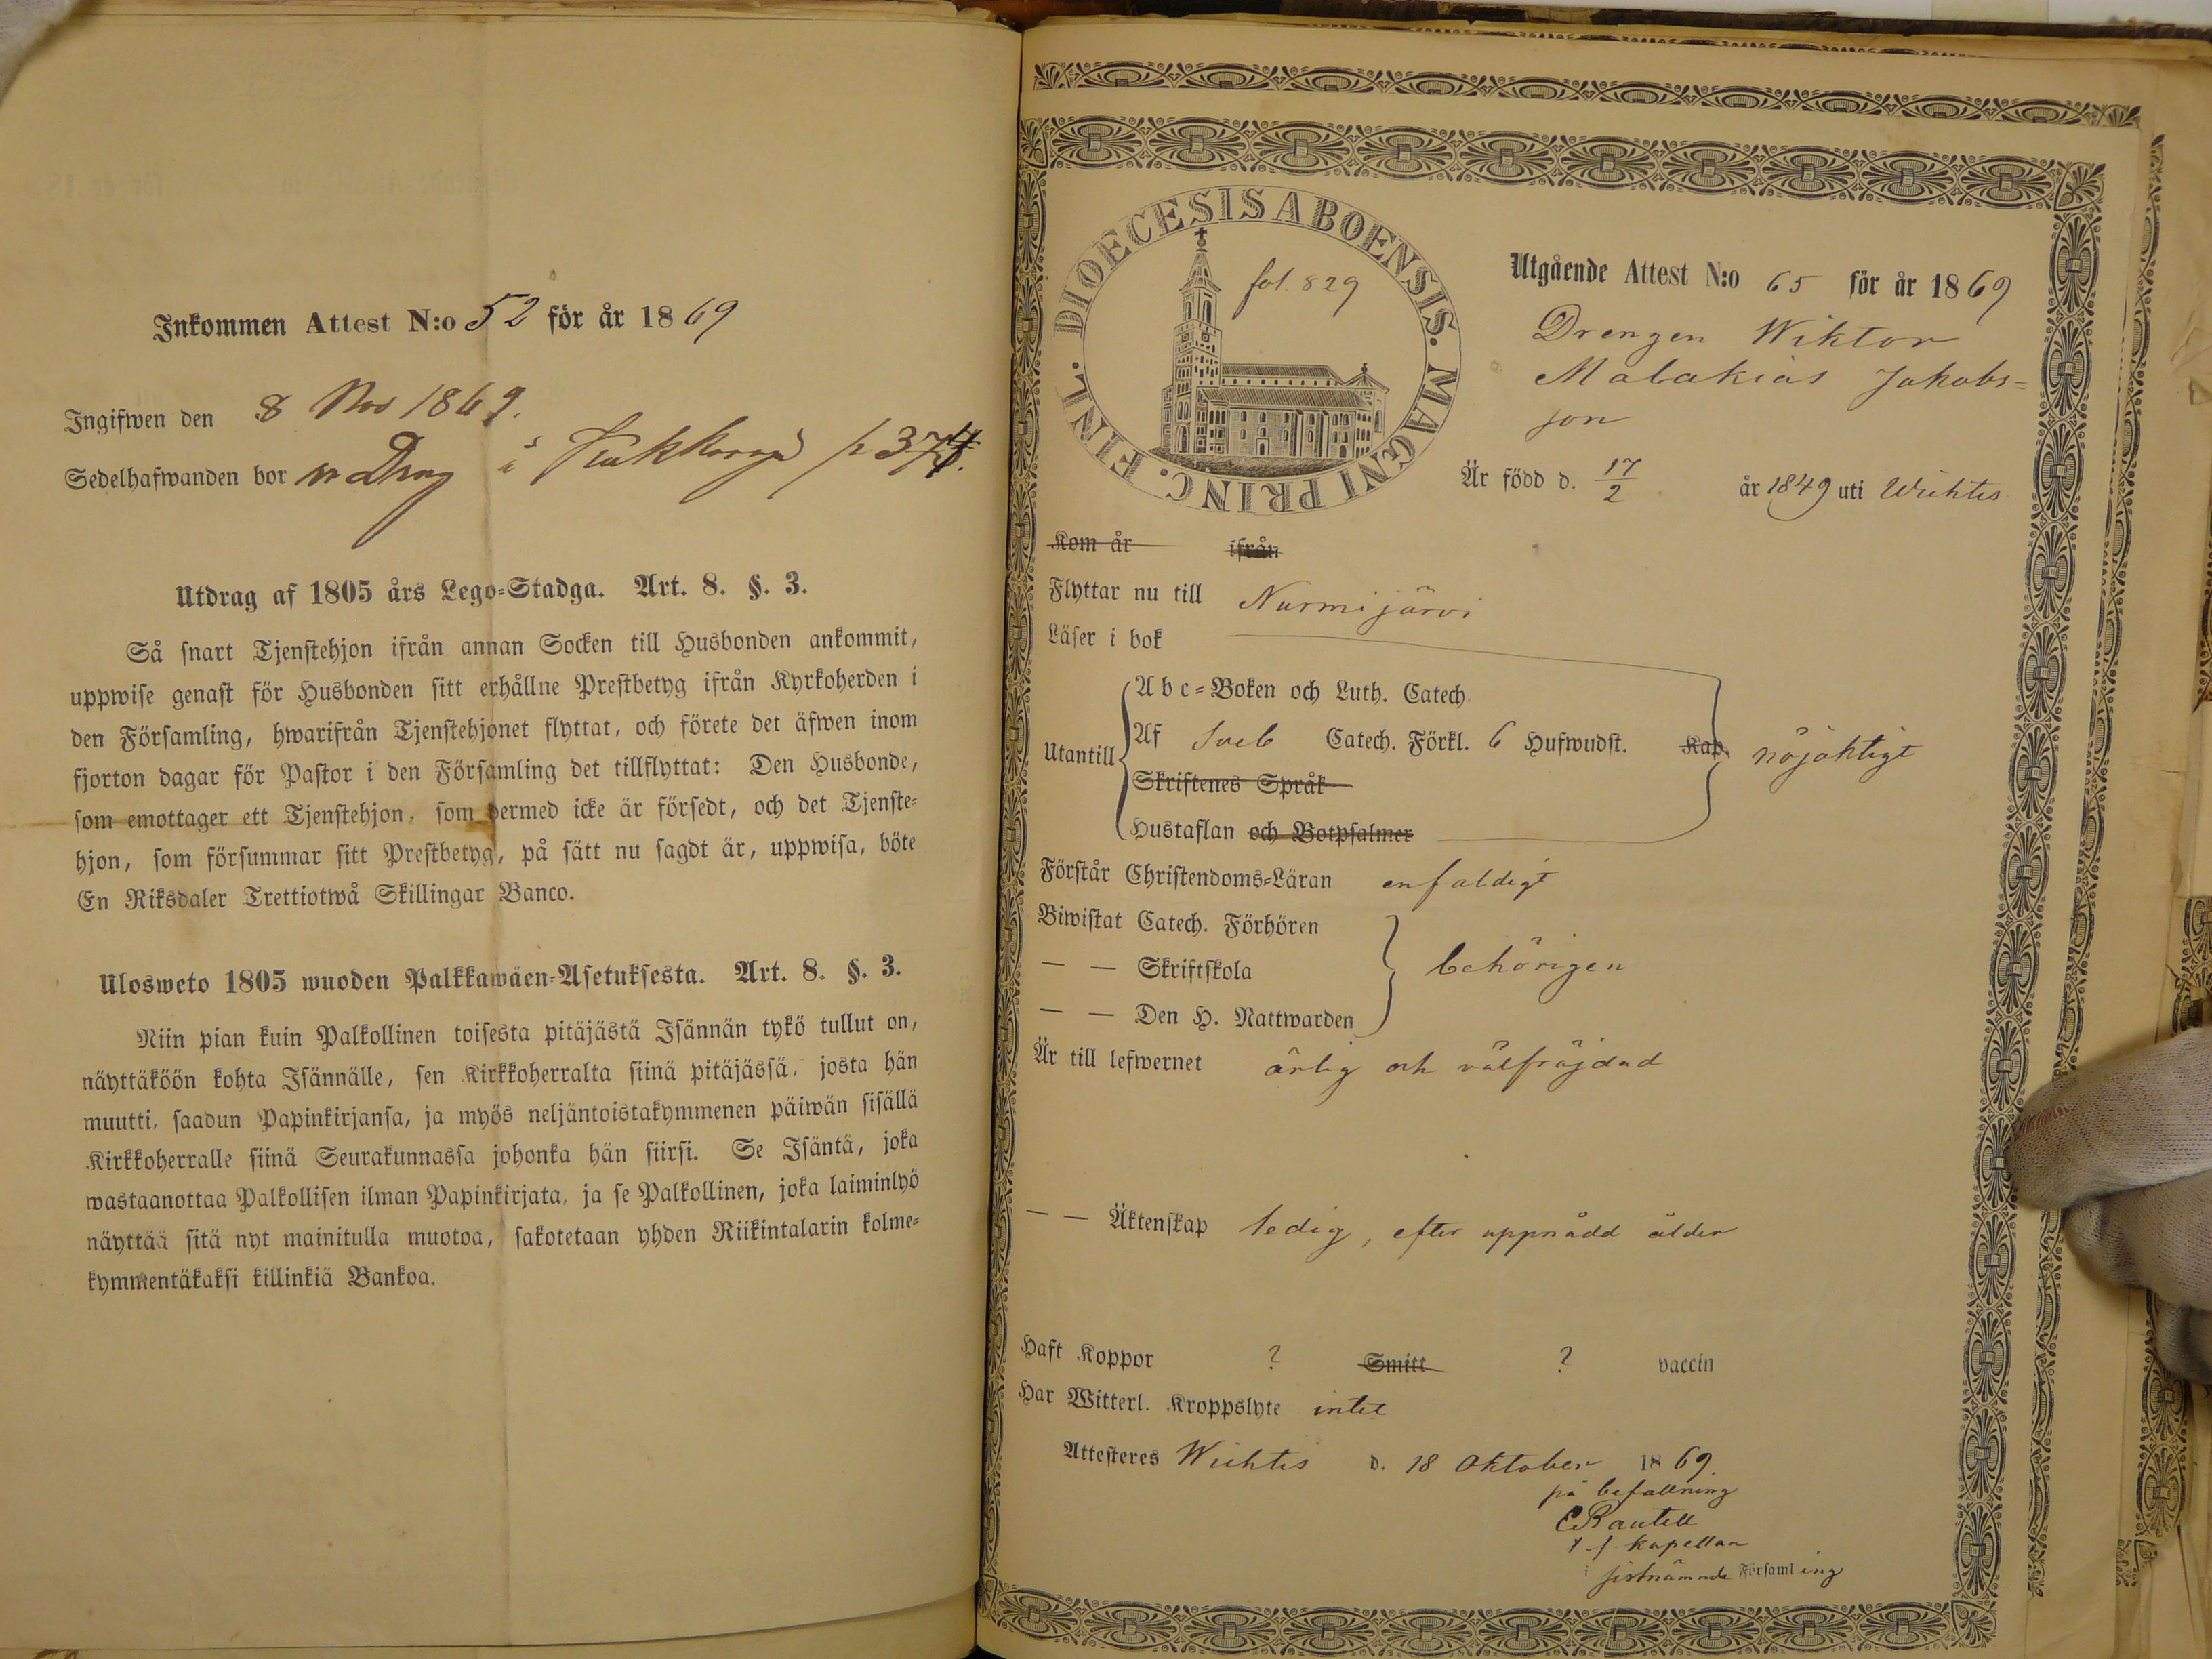 Inkommen Attest N:o 52 för år 1869
Ingifwen den 8 Nov 1869.
Sedelhafwanden bor å p 374.
Utdrag af 1805 års Lego-Stadga. Art. 8. §. 3.
Så snart Tjenstehjon ifrån annan Socken till Husbonden ankommit,
uppwise genast för Husbonden sitt erhållne Prestbetyg ifrån Kyrkoherden i
den Församling, hwarifrån Tjenstehjonet flyttat, och förete det äfwen inom
fjorton dagar för Pastor i den Församling det tillflyttat: Den Husbonde,
som emottager ett Tjenstehjon, som dermed icke är försedt, och det Tjenste-
hjon, som försummar sitt Prestbetyg, på sätt nu sagdt är, uppwisa, böte
En Riksdaler Trettiotwå Skillingar Banco.
Ulosweto 1805 wuoden Palkkawäen-Asetuksesta. Art. 8. §. 3.
Niin pian kuin Palkollinen toisesta pitäjästä Isännän tykö tullut on,
näyttäköön kohta Isännälle, sen Kirkkoherralta siinä pitäjässä, josta hän
muutti, saadun Papinkirjansa, ja myös neljäntoistakymmenen päiwän sisällä
Kirkkoherralle siinä Seurakunnassa johonka hän siirsi. Se Isäntä, joka
wastaanottaa Palkollisen ilman Papinkirjata, ja se Palkollinen, joka laiminlyö
näyttää sitä nyt mainitulla muotoa, sakotetaan yhden Riikintalarin kolme-
kymmentäkaksi killinkiä Bankoa.
DIOECESIS ABOENSIS. MAGNI PRINC. FINL.
fol. 829
Utgående Attest N:o 65 för år 1869
Drengen Wiktor
Malakias Jakobs=
son
Är född d. 17/2 år 1849 uti Wichtis
Kom år ifrån
Flyttar nu till Nurmijärvi
Läser i bok
Utantill
A b c-Boken och Luth. Catech.
Af Sveb Catech. Förkl. 6 Hufwudst. Kap. nöjaktigt
Skriftenes Språk
Hustaflan och Botpsalmer
Förstår Christendoms-Läran enfaldigt
Biwistat Catech. Förhören
— — Skriftskola behörigen
— — Den H. Nattwarden
Är till lefwernet ärlig och välfräjdad
— — Äktenskap ledig, efter uppnådd ålder
Haft Koppor ? Smitt ? vaccin
Har Witterl. Kroppslyte intet
Attesteres Wichtis d. 18 Oktober 1869.
på befallning
t f. kapellan
i sistnämnde Församling